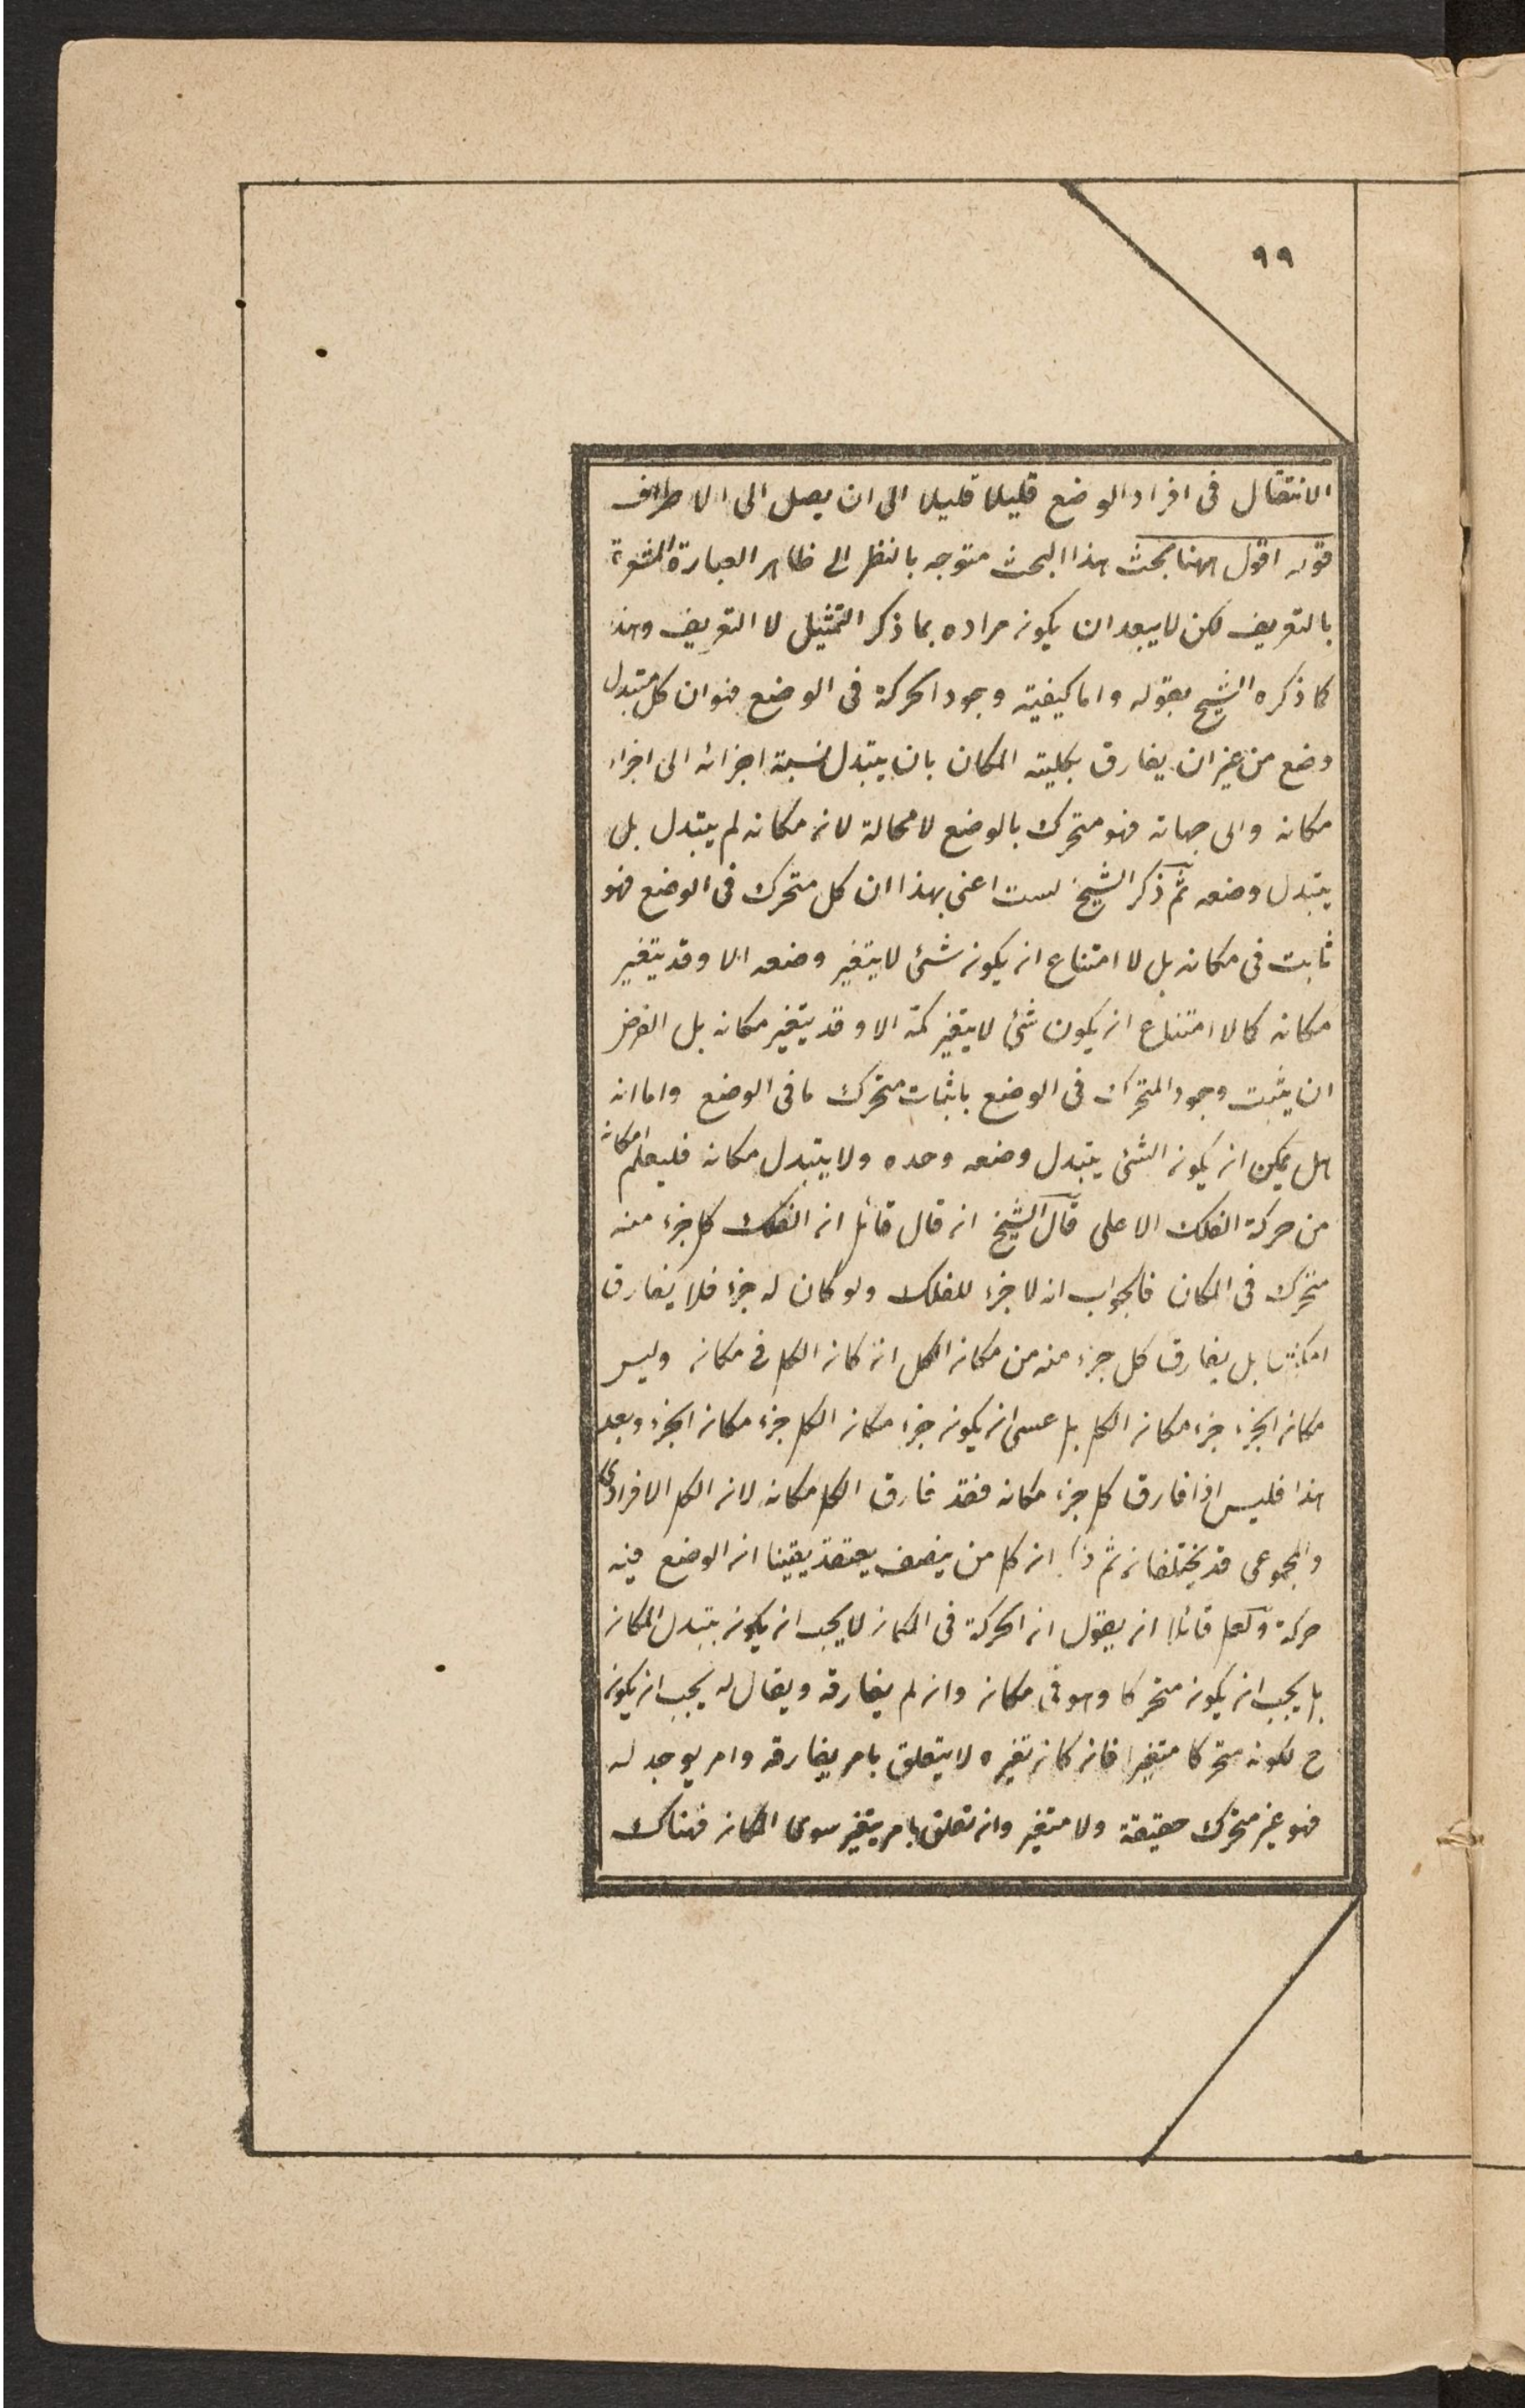 ٩٩
الانتقال فى افراد الوضع قليلا قليلا الى ان يصل الى الاطراف
قوله اقول ههنا بحث هذا البحث متوجه بالنظر الى ظاهر العبارة المشعرة
بالتعريف لكن لا يبعد ان يكون مراده بما ذكر التمثيل لا التعريف وهذا
كما ذكره الشيخ بقوله واما كيفية وجود الحركة فى الوضع فهو ان كل متبدل
وضع من غير ان يفارق بكليته المكان بان يتبدل نسبة اجزائه الى اجزاء
مكانه والى جهاته فهو متحرك بالوضع لا محالة لان مكانه لم يتبدل بل
يتبدل وضعه ثم ذكر الشيخ لست اعنى بهذا ان كل متحرك فى الوضع فهو
ثابت فى مكانه بل لا امتناع ان يكون شئ لا يتغير وضعه الا وقد يتغير
مكانه كما لا امتناع ان يكون شئ لا يتغير كمه الا وقد يتغير مكانه بل الغرض
ان يثبت وجود المتحرك فى الوضع باثبات متحرك ما فى الوضع واما انه
هل يمكن ان يكون الشئ يتبدل وضعه وحده ولا يتبدل مكانه فليعلم امكانه
من حركة الفلك الاعلى قال الشيخ ان قال قائل ان الفلك كل جزء منه
متحرك فى المكان فالجواب ان لا جزء للفلك ولو كان له جزء فلا يفارق
امكنتها بل يفارق كل جزء منه من مكان الكل ان كان الكل فى مكان وليس
مكان الجزء جزء مكان الكل بل عسى ان يكون جزء مكان الكل جزء مكان الجزء وبعد
هذا فليس اذا فارق كل جزء مكانه فقد فارق الكل مكانه لان الكل الافرادى
والمجموعى قد يختلفان ثم ذكر ان كل من ينصف يعتقد يقينا ان الوضع فيه
حركة ولعل قائلا ان يقول ان الحركة فى المكان لا يجب ان يكون بتبدل المكان
بل يجب ان يكون متحركا وهو فى مكان وان لم يفارقه ويقال له يجب ان يكون
ح لكونه متحركا متغيرا فان كان تغيره لا يتعلق بامر يفارقه وامر يوجد له
فهو غير متحرك حقيقة ولا متغير وان تعلق بامر يتغير سوى المكان فهناك